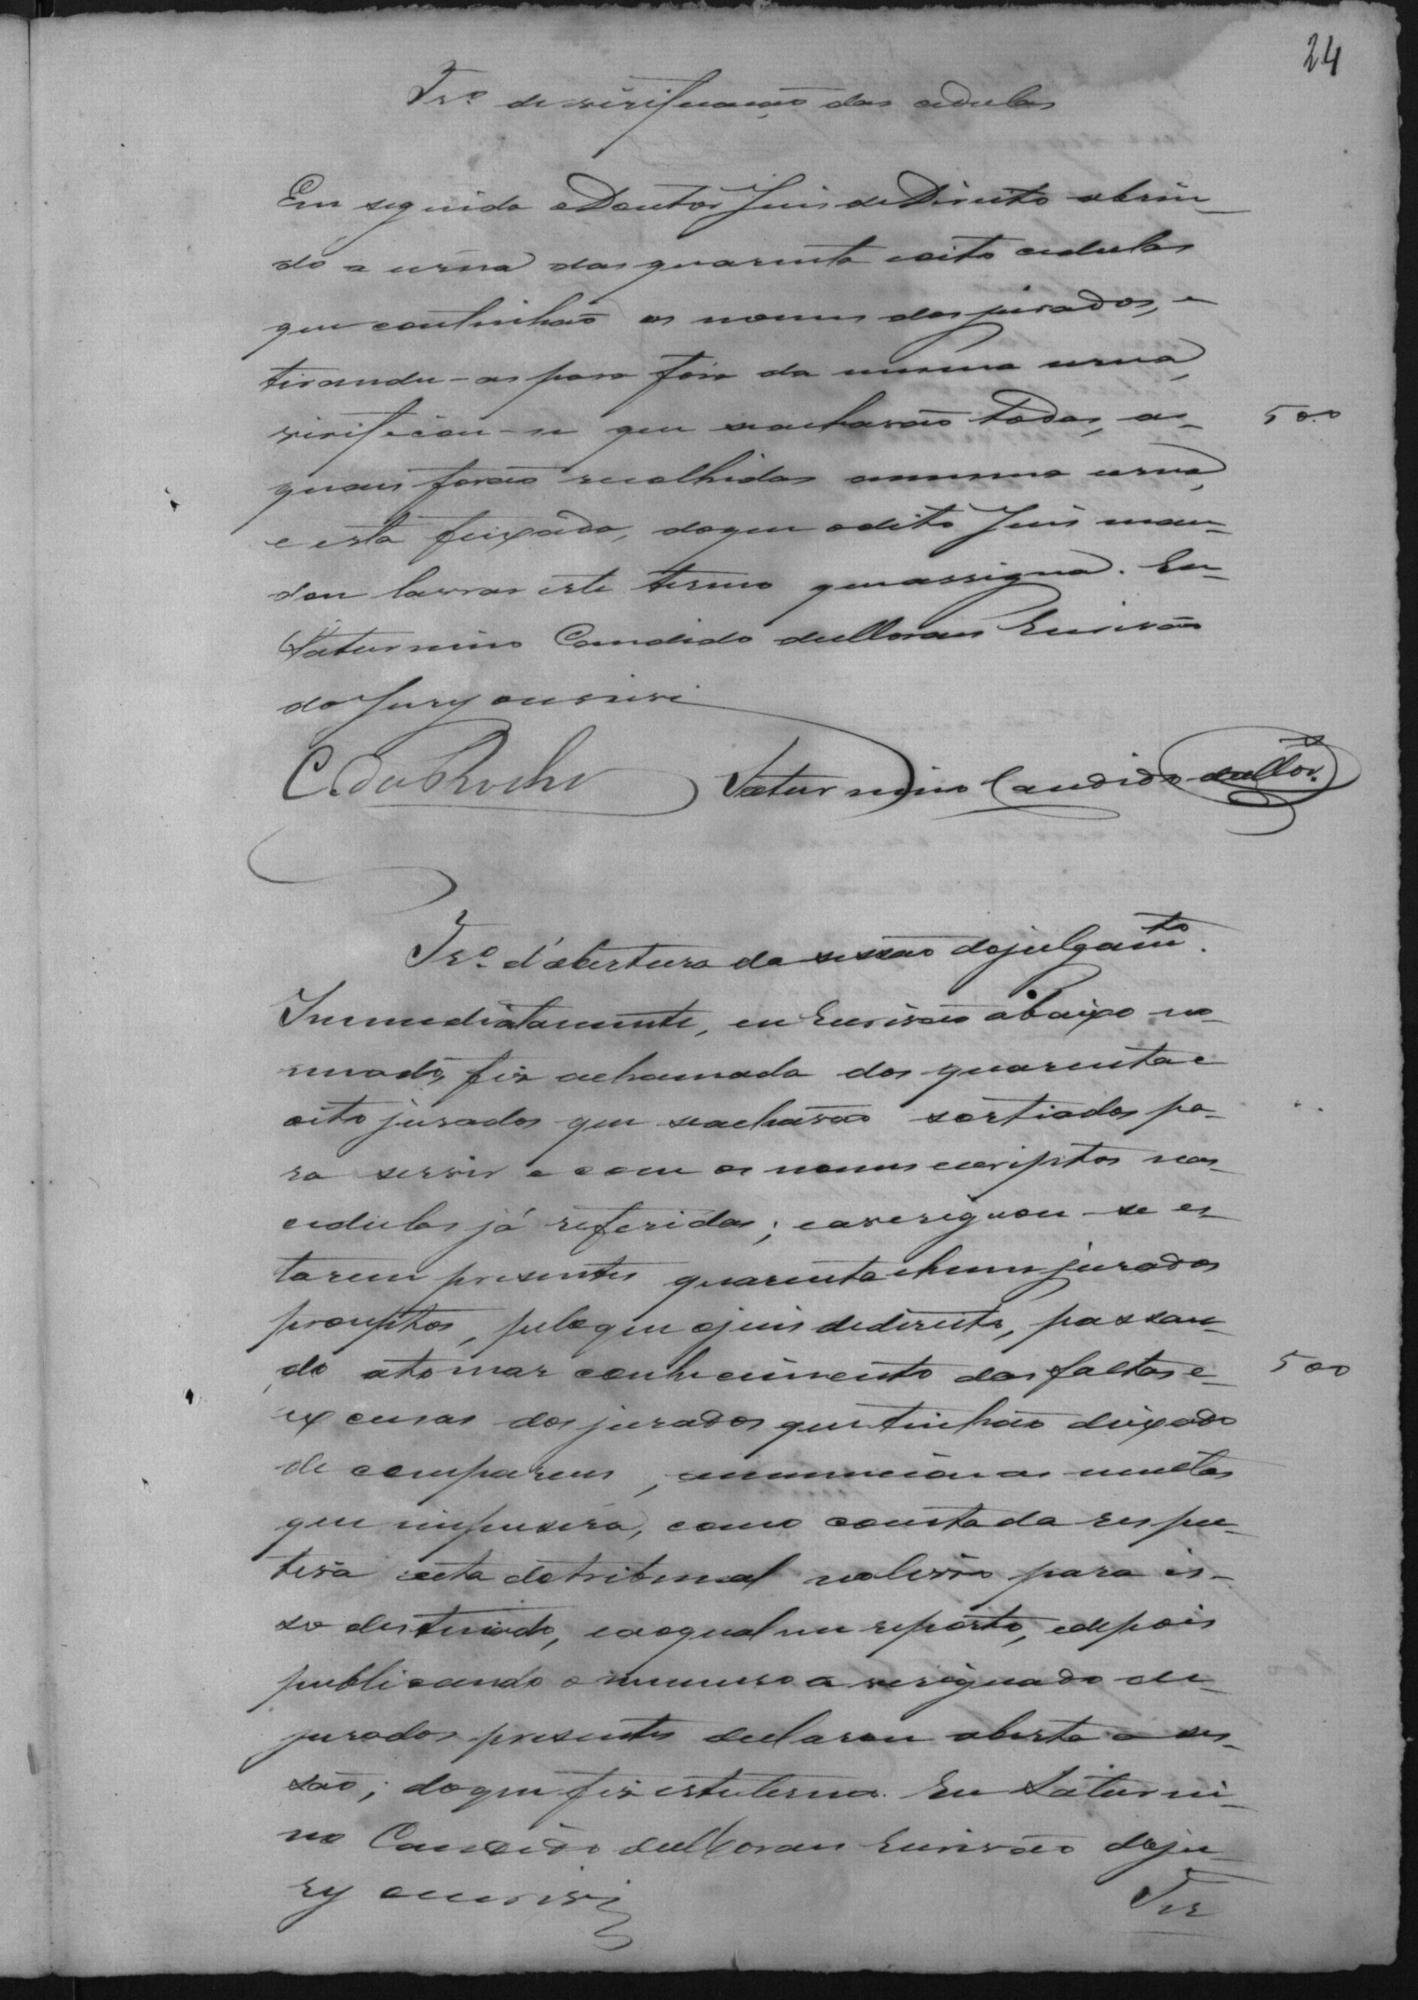 24
Trº de verificação das cedulas
Em seguida o Doutor Juis de Direito abrin-
do a urna das quarenta eoito cedulas
que continhão os nomes dos jurados, e
tirando-as para fóra da mesma urna,
virificou-se que seachavão todas, as- 500
quais forão recolhidas amesma urna,
e esta feixada, doque odito Juis man-
dou lavrar este termo queassigna. Eu
Saturnino Candido deMoraes Escrivão
do Jury oescrevi
C. da Rocha Saturnino Candido deMor.s
Trº d'abertura da sessão dojulgamto.
Immediatamente, eu Escrivão abaixo no-
meado, fis achamada dos quarenta e
oito jurados que seachavão sortiados pa-
ra servir e com os nomes escriptos nas
cedulas já referidas; eaverigou-se es-
tarem presentes quarenta ehum jurados
promptos, peloque ojuis dedireito, passan-
do atomar conhecimento das faltas e- 500
excusas dos jurados que tinhão deixado
de comparecer, annunciou as multas
que impusera, como consta da respe-
tiva acta dotribunal nolivro para is-
so destinado, eaoqual me reporto, edepois
publicando o numero averiguado de
jurados presentes declarou aberta a ses-
são; doque fis estetermo. Eu Saturni-
no Candido deMoraes Escrivão doju-
ry oescrevi
Ter